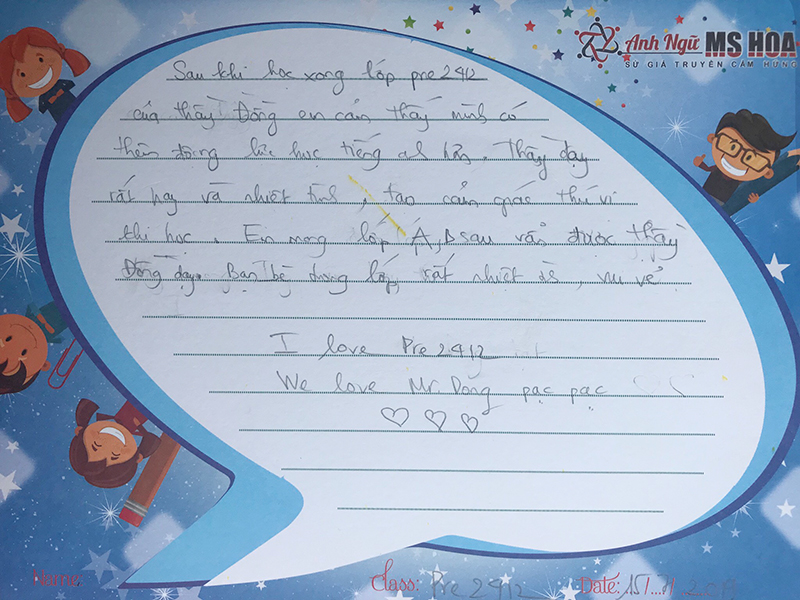 Anh Ngữ MS HOA
SỨ GIẢ TRUYỀN CẢM HỨNG
Sau khi học xong lớp pre 2412
của thầy Đồng em cảm thấy mình có
thêm động lực học tiếng anh hơn. Thầy dạy
rất hay và nhiệt tình, tạo cảm giác thú vị
khi học. Em mong lớp A, B sau vẫn được thầy
Đồng dạy. Bạn bè trong lớp rất nhiệt tình, vui vẻ
I love Pre 2412
We love Mr. Dong pạc pạc
Name:
Class: Pre 2412 Date: 15/